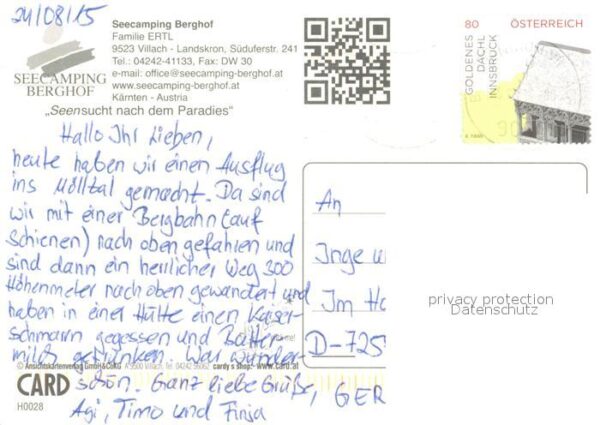 24/08/15
Seecamping Berghof
Familie ERTL
9523 Villach - Landskron, Süduferstr. 241
Tel.: 04242-41133, Fax: DW 30
e-mail: office@seecamping-berghof.at
www.seecamping-berghof.at
Kärnten - Austria
SEECAMPING
BERGHOF
„Seensucht nach dem Paradies“
80 ÖSTERREICH
GOLDENES
DACHL
INNSBRUCK
Hallo Ihr Lieben,
heute haben wir einen Ausflug
ins Mölltal gemacht. Da sind
wir mit einer Bergbahn (auf
Schienen) nach oben gefahren und
sind dann ein herrlicher Weg 300
Höhenmeter nach oben gewandert und
haben in einer Hütte einen Kaiser-
schmarrn gegessen und Butter
milch getrunken. War wunder-
schön. Ganz liebe Grüße,
Agi, Timo und Finja
An
Inge u
Im Ho
D-725
GER
privacy protection
Datenschutz
© Ansichtskartenverlag GmbH&CoKG A 9500 Villach, Tel. 04242 56062 cardy s shop: - www.card.at
CARD
H0028